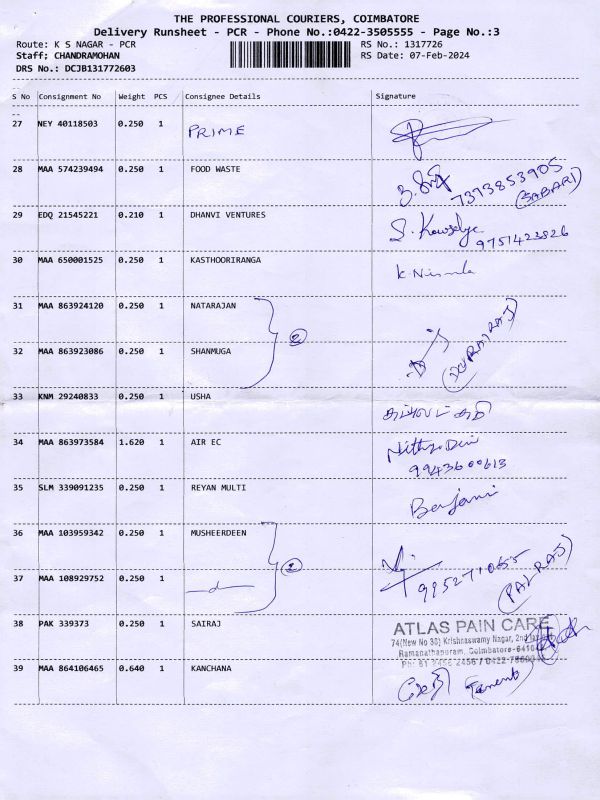 THE PROFESSIONAL COURIERS, COIMBATORE
Delivery Runsheet - PCR - Phone No.:0422-3505555 - Page No.:3
Route: K S NAGAR - PCR RS No.: 1317726
Staff; CHANDRAMOHAN RS Date: 07-Feb-2024
DRS No.: DCJB131772603
S No Consignment No Weight PCS Consignee Details Signature
27 NEY 40118503 0.250 1 PRIME
28 MAA 574239494 0.250 1 FOOD WASTE
7373853905
(SABARI)
29 EDQ 21545221 0.210 1 DHANVI VENTURES
9751423826
30 MAA 650001525 0.250 1 KASTHOORIRANGA K. Nirmala
31 MAA 863924120 0.250 1 NATARAJAN
2
32 MAA 863923086 0.250 1 SHANMUGA
33 KNM 29240833 0.250 1 USHA
34 MAA 863973584 1.620 1 AIR EC Nithya Devi
9943600613
35 SLM 339091235 0.250 1 REYAN MULTI
36 MAA 103959342 0.250 1 MUSHEERDEEN
2
37 MAA 108929752 0.250 1
9952710655
(PALRAJ)
38 PAK 339373 0.250 1 SAIRAJ ATLAS PAIN CARE
74(New No 80) Krishnaswamy Nagar, 2nd
Ramanathapuram, Coimbatore-6410
39 MAA 864106465 0.640 1 KANCHANA